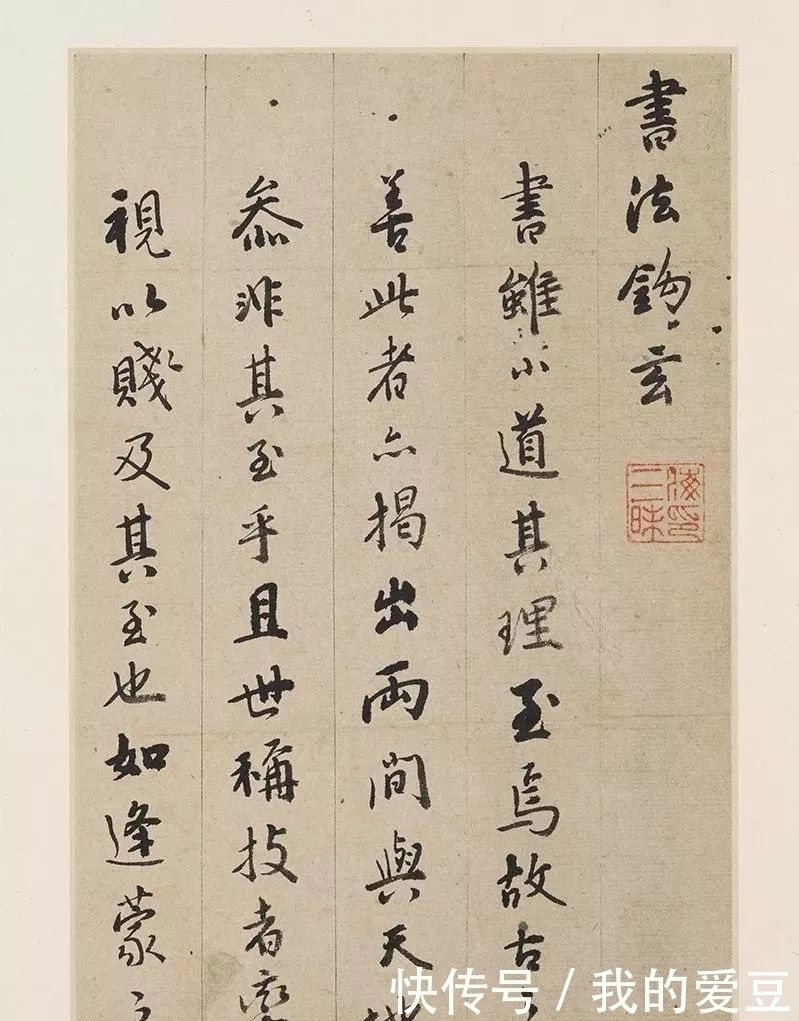 書法鈎玄
海印三昧
書雖小道其理至焉故古
善此者亦揭出兩間與天地
叅非其至乎且世稱技者
視以賤及其至也如逢蒙之
快传号 / 我的爱豆